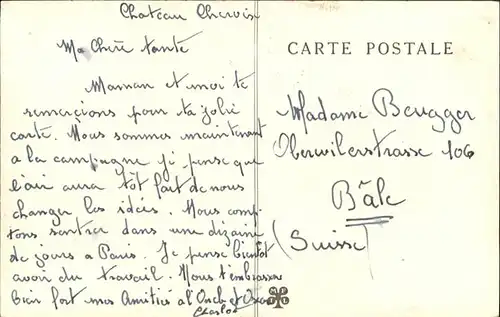 Chateau Chervix
Ma Chère tante
Maman et moi te
remerçions pour ta jolie
carte. Nous sommes maintenant
a la campagne je pense que
l'air aura tôt fait de nous
changer les idées. Nous comp
tons rentrer dans une dizaine
de jours a Paris. Je pense bientôt
avoir du travail. Nous t'embrassons
bien fort mes Amitiés a l'Oncle et
Charlot
CARTE POSTALE
Madame Beugger
Oberwilerstrasse 106
Bâle
(Suisse)